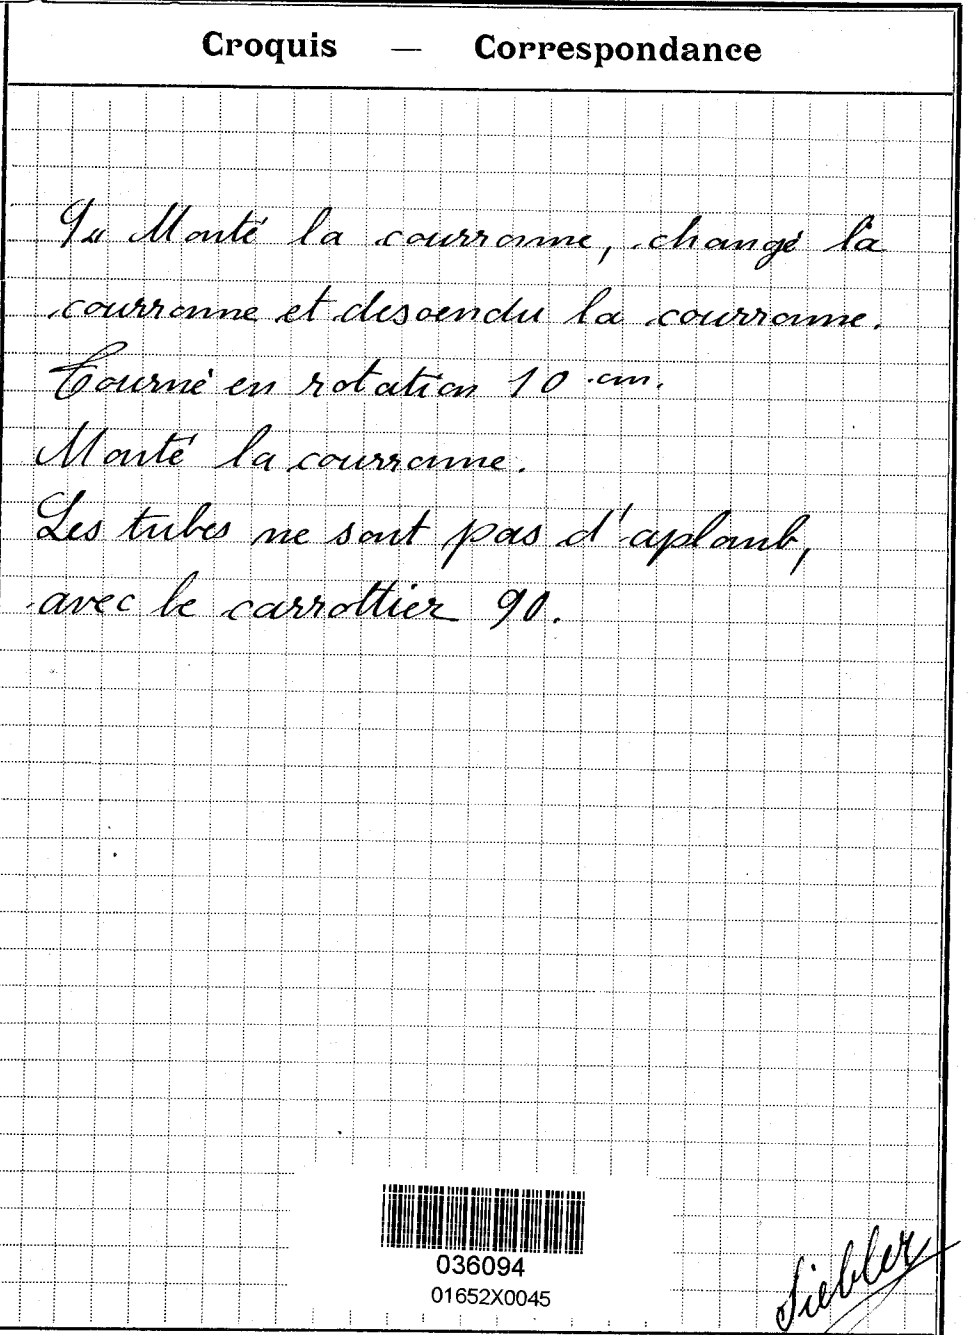 Croquis — Correspondance
Monté la courronne, changé la
courronne et desoendu la courronne.
Tourné en rotation 10 cm.
Monté la courronne.
Les tubes ne sont pas d'aplomb,
avec le carrottier 90.
036094
01652X0045
Siebler